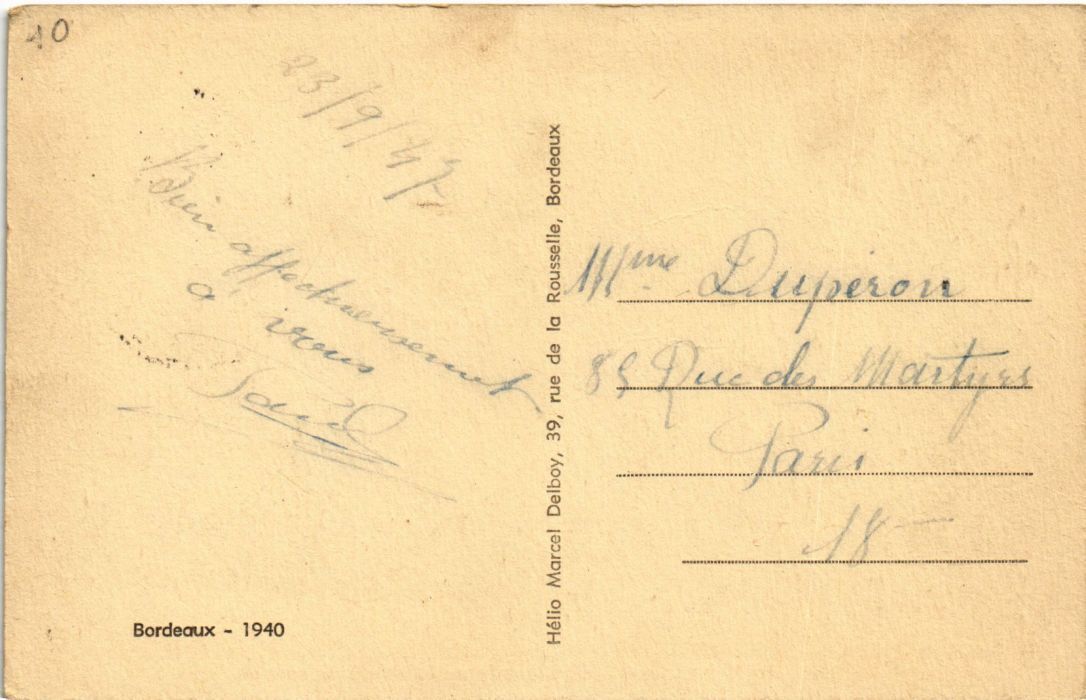 10
23/9/47
Bien affectueusement
à vous
Paul
Bordeaux - 1940
Hélio Marcel Delboy, 39, rue de la Rousselle, Bordeaux
Mme Duperon
85 Rue des Martyrs
Paris
18